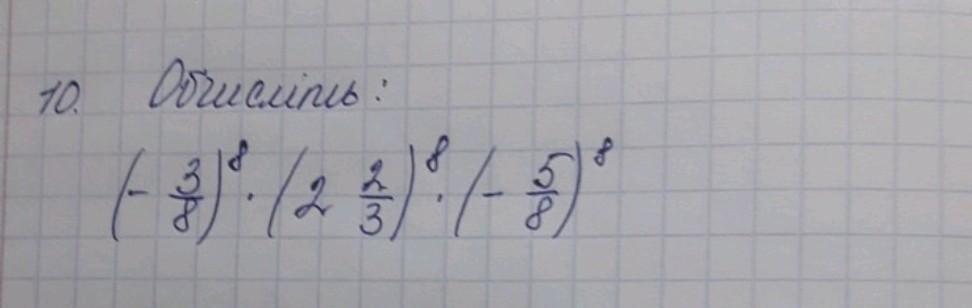 10. Обчисліть:
(- 3/8)^8 · (2 2/3)^8 · (- 5/8)^8